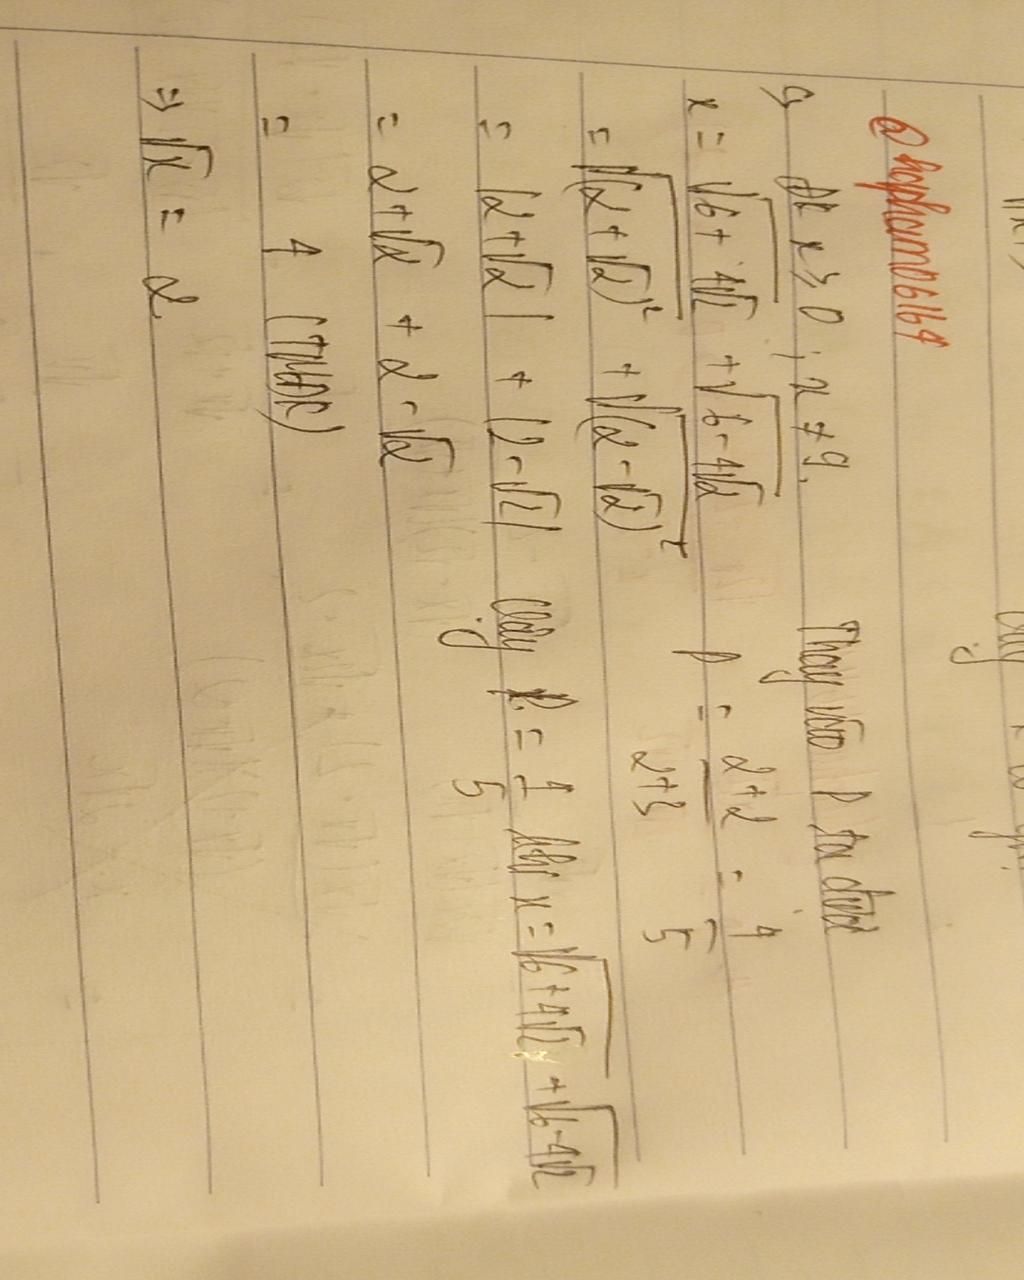 @hopham06164
a, đk x ≥ 0 ; x ≠ 9.
x = √(6+4√2) + √(6-4√2)
= √((2+√2)²) + √((2-√2)²)
= |2+√2| + |2-√2|
= 2+√2 + 2-√2
= 4 (TMĐK)
⇒ √x = 2
Thay vào P ta được
P = (2+2)/(2+3) = 4/5
Vậy P = 4/5 khi x = √(6+4√2) + √(6-4√2)